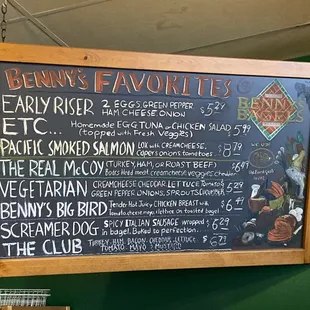 BENNY'S FAVORITES
EARLY RISER 2 EGGS, GREEN PEPPER,
HAM, CHEESE, ONION $5.24
ETC... Homemade EGG TUNA or CHICKEN SALAD
(topped with Fresh Veggies) $5.99
PACIFIC SMOKED SALMON LOX with CREAMCHEESE,
Capers onions tomatoes $8.79
THE REAL McCOY (TURKEY, HAM, or ROAST BEEF)
Boars Head meat creamcheese veggies cheddar $6.99
VEGETARIAN CREAMCHEESE CHEDDAR LETTUCE Tomatoes
GREEN PEPPER ONIONS, SPROUTS $5.29
BENNY'S BIG BIRD Tender Hot Juicy CHICKEN BREAST with
Tomato cheese mayo lettuce on toasted bagel $6.49
SCREAMER DOG SPICY ITALIAN SAUSAGE wrapped
in bagel. Baked to perfection. $6.29
THE CLUB TURKEY, HAM, BACON, ONIONS, LETTUCE
TOMATO, MAYO & MUSTARD $6.79
BENNY'S
BAGELS